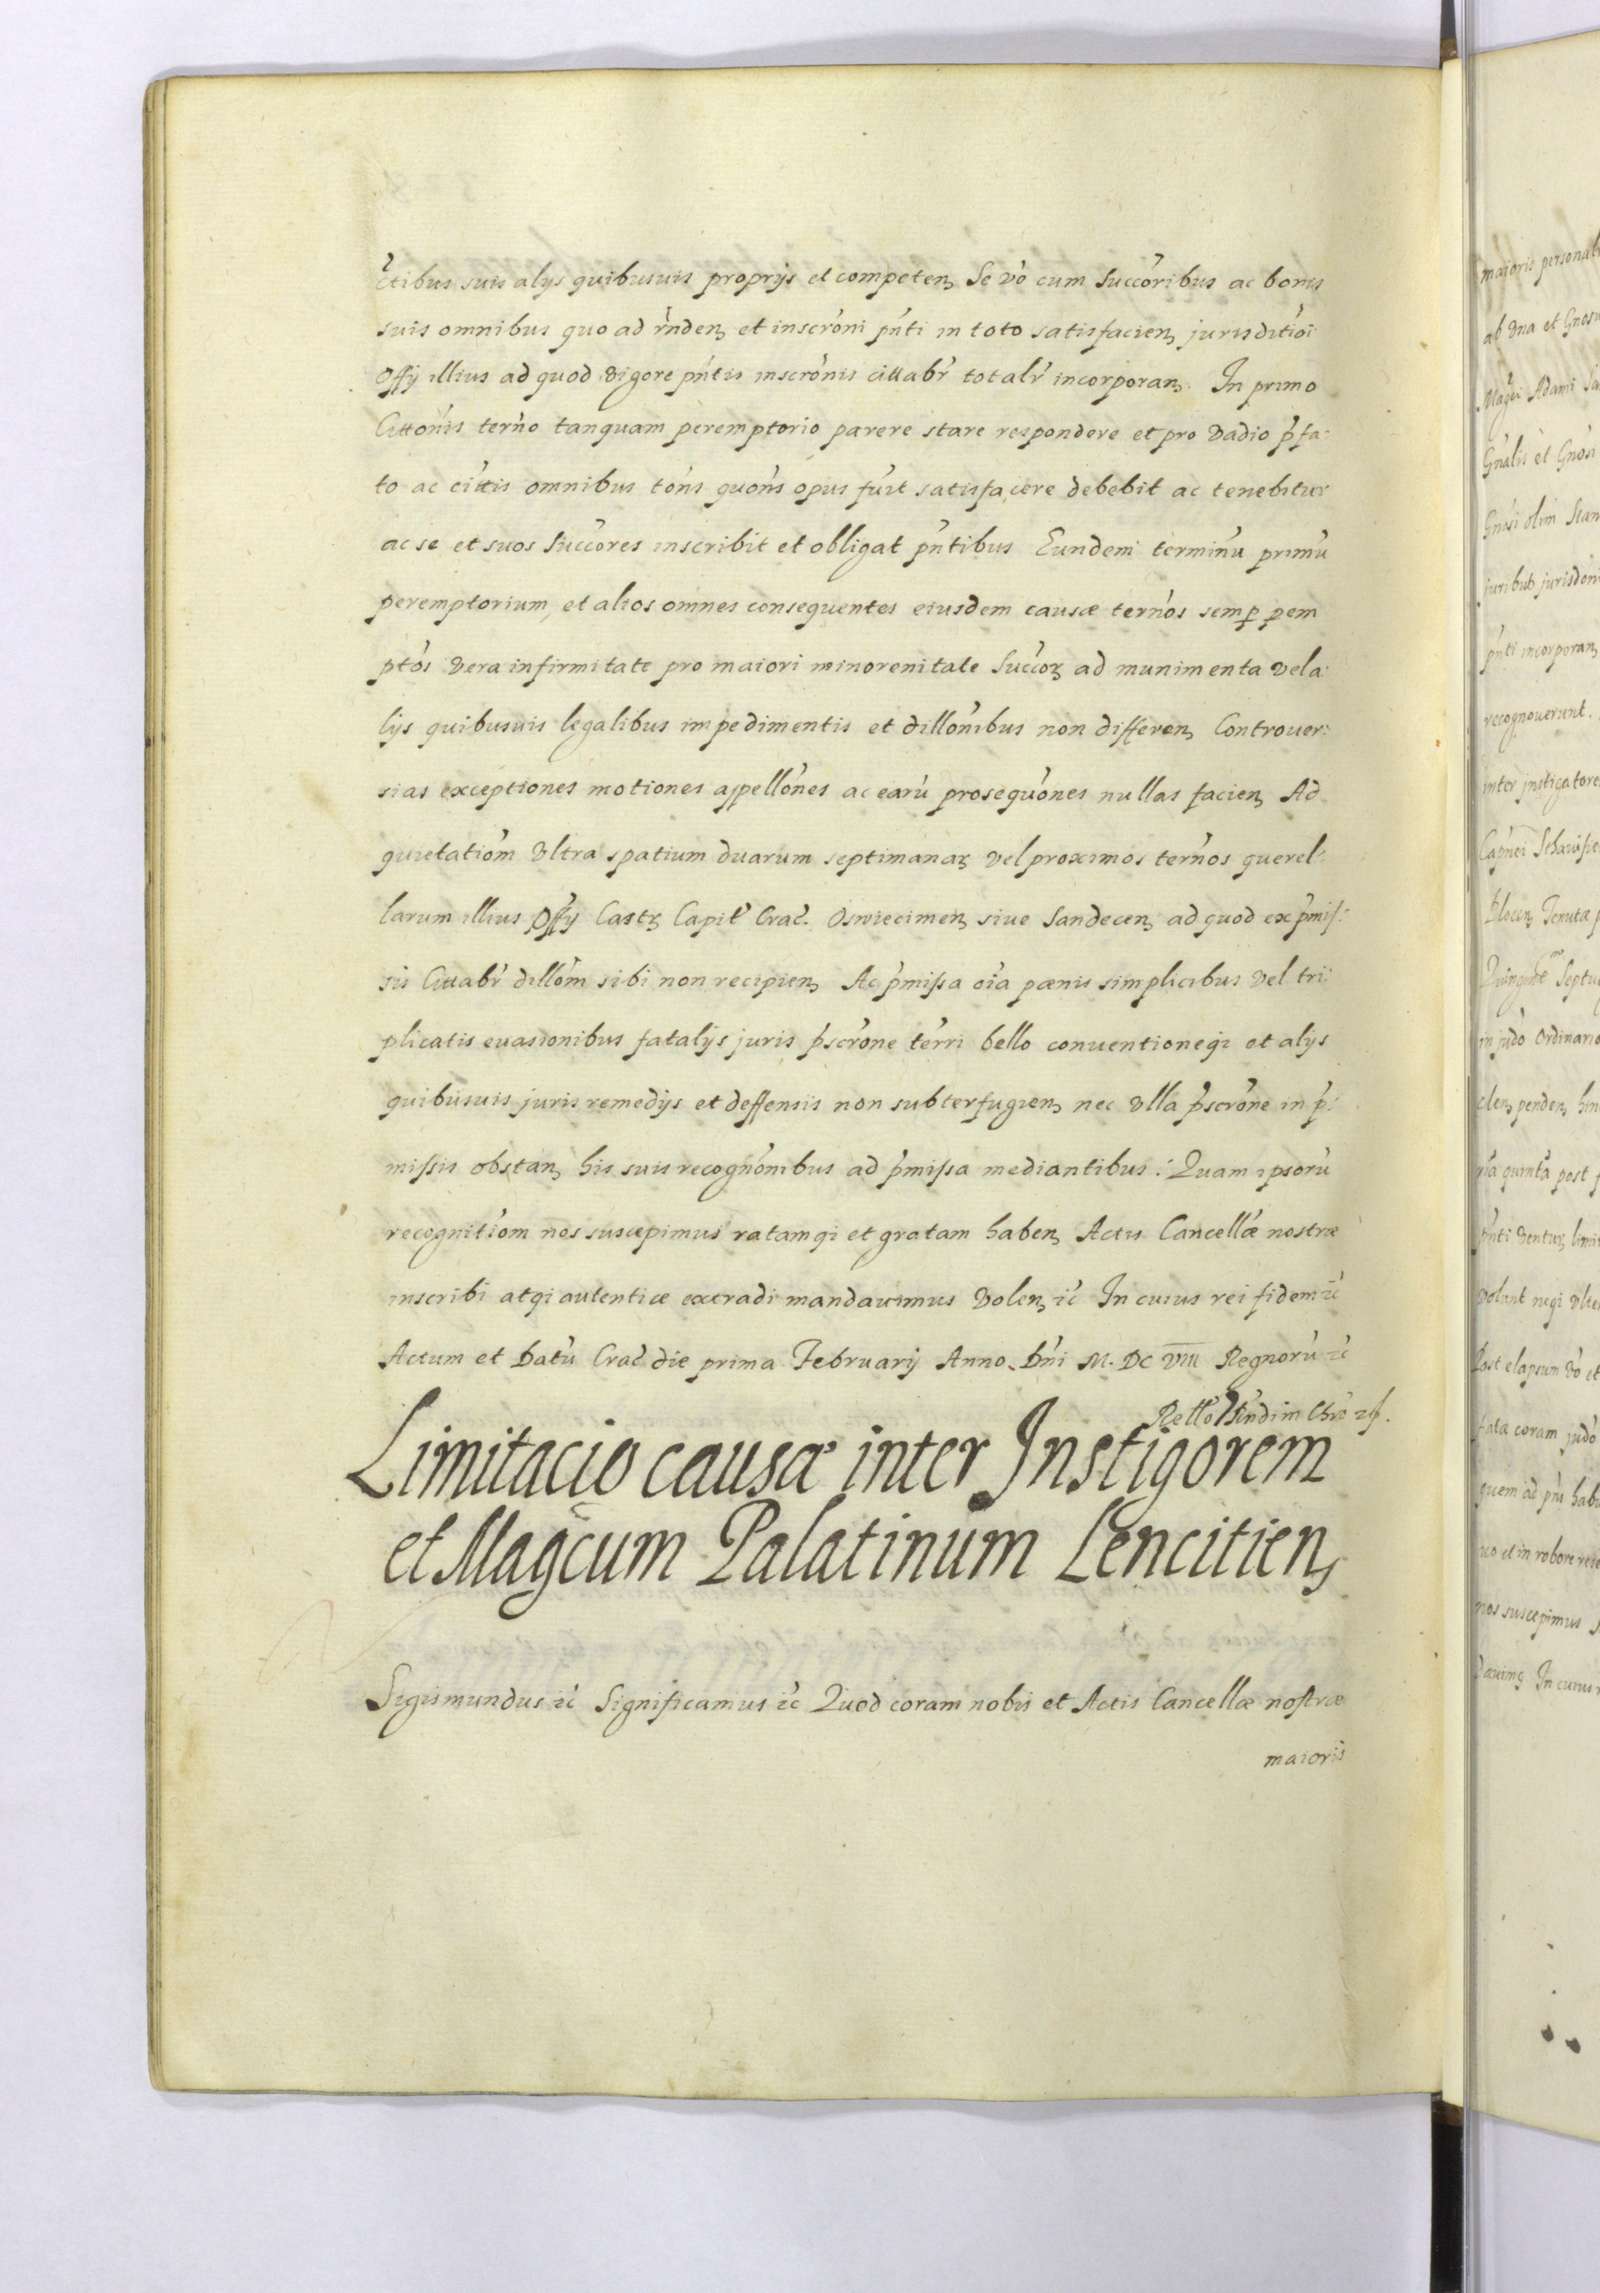 ctibus suis alys quibusuis proprijs et competen Se vo cum Succoribus ac bonis
suis omnibus quo ad rnden et inscroni pnti in toto satisfacien jurisditioi
Offy illius ad quod vigore pntis inscronis cittabr totalr incorporan. In primo
Cittonis terno tanquam peremptorio parere stare respondere et pro vadio pfa:
to ac cittis omnibus tons quons opus fuit satisfacere debebit ac tenebitur
ac se et suos Succores inscribit et obligat pntibus Eundem terminu primu
peremptorium, et alios omnes consequentes eiusdem causæ ternos semp pem
ptos vera infirmitate pro maiori minorenitate Succor ad munimenta vel a:
lijs quibusuis legalibus impedimentis et dillonibus non differen Controuer:
sias exceptiones motiones appellones ac earu prosequones nullas facien Ad
quietatiom vltra spatium duarum septimanar vel proximos ternos querel:
larum illius Offy Castr Capit Crac. Oswiecimen siue Sandecen ad quod ex pmis:
sis Cittabr dillom sibi non recipien Ac pmissa oia pænis simplicibus vel tri:
plicatis euasionibus fatalijs juris pscrone terri bello conuentioneqi et alijs
quibusuis juris remedijs et deffensis non subterfugien nec vlla pscrone in p:
missis obstan his suis recognonibus ad pmissa mediantibus: Quam ipsoru
recognitiom nos suscepimus ratamqi et gratam haben Actis Cancellæ nostræ
inscribi atqi autenticæ extradi mandauimus volen ic In cuius rei fidem ic
Actum et Datu Crac die prima February Anno Dni M. DC VIII Regnoru ic
Limitacio causæ inter Instigorem
et Magcum Palatinum Lencitien
Sigismundus ic Significamus ic Quod coram nobis et Actis Cancellæ nostræ
maioris